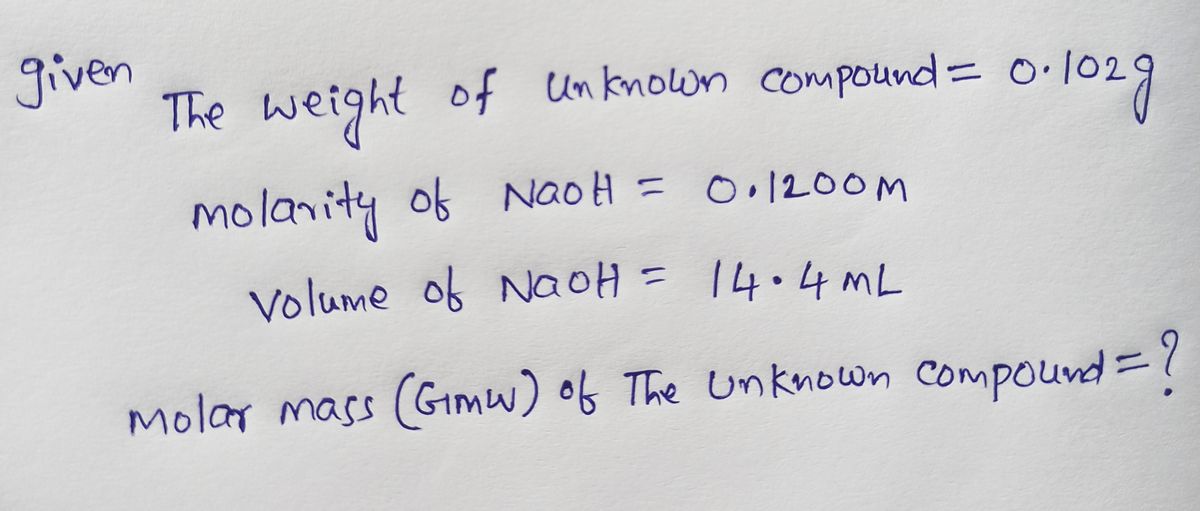 given
The weight of unknown compound = 0.102g
molarity of NaOH = 0.1200M
Volume of NaOH = 14.4 mL
Molar mass (GMW) of The Unknown compound = ?